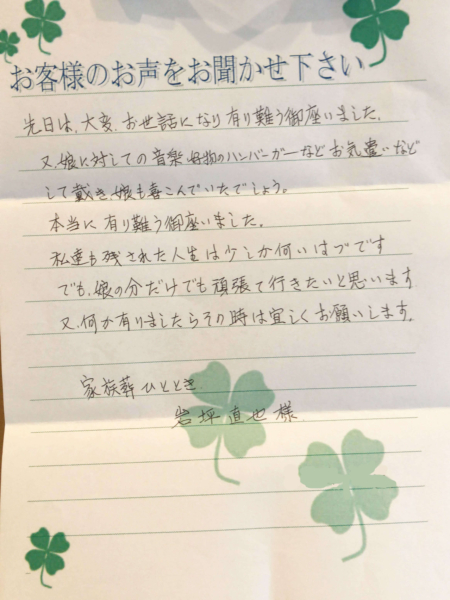 お客様のお声をお聞かせ下さい
先日は、大変、お世話になり有り難う御座いました。
又、娘に対しての音楽 好物のハンバーガーなど お気遣いなど
して戴き、娘も喜こんでいたでしょう。
本当に有り難う御座いました。
私達も残された人生は少しか何いはづです
でも、娘の分だけでも頑張て行きたいと思います
又、何か有りましたらその時は宜しくお願いします。
家族葬ひととき
岩坪直也様